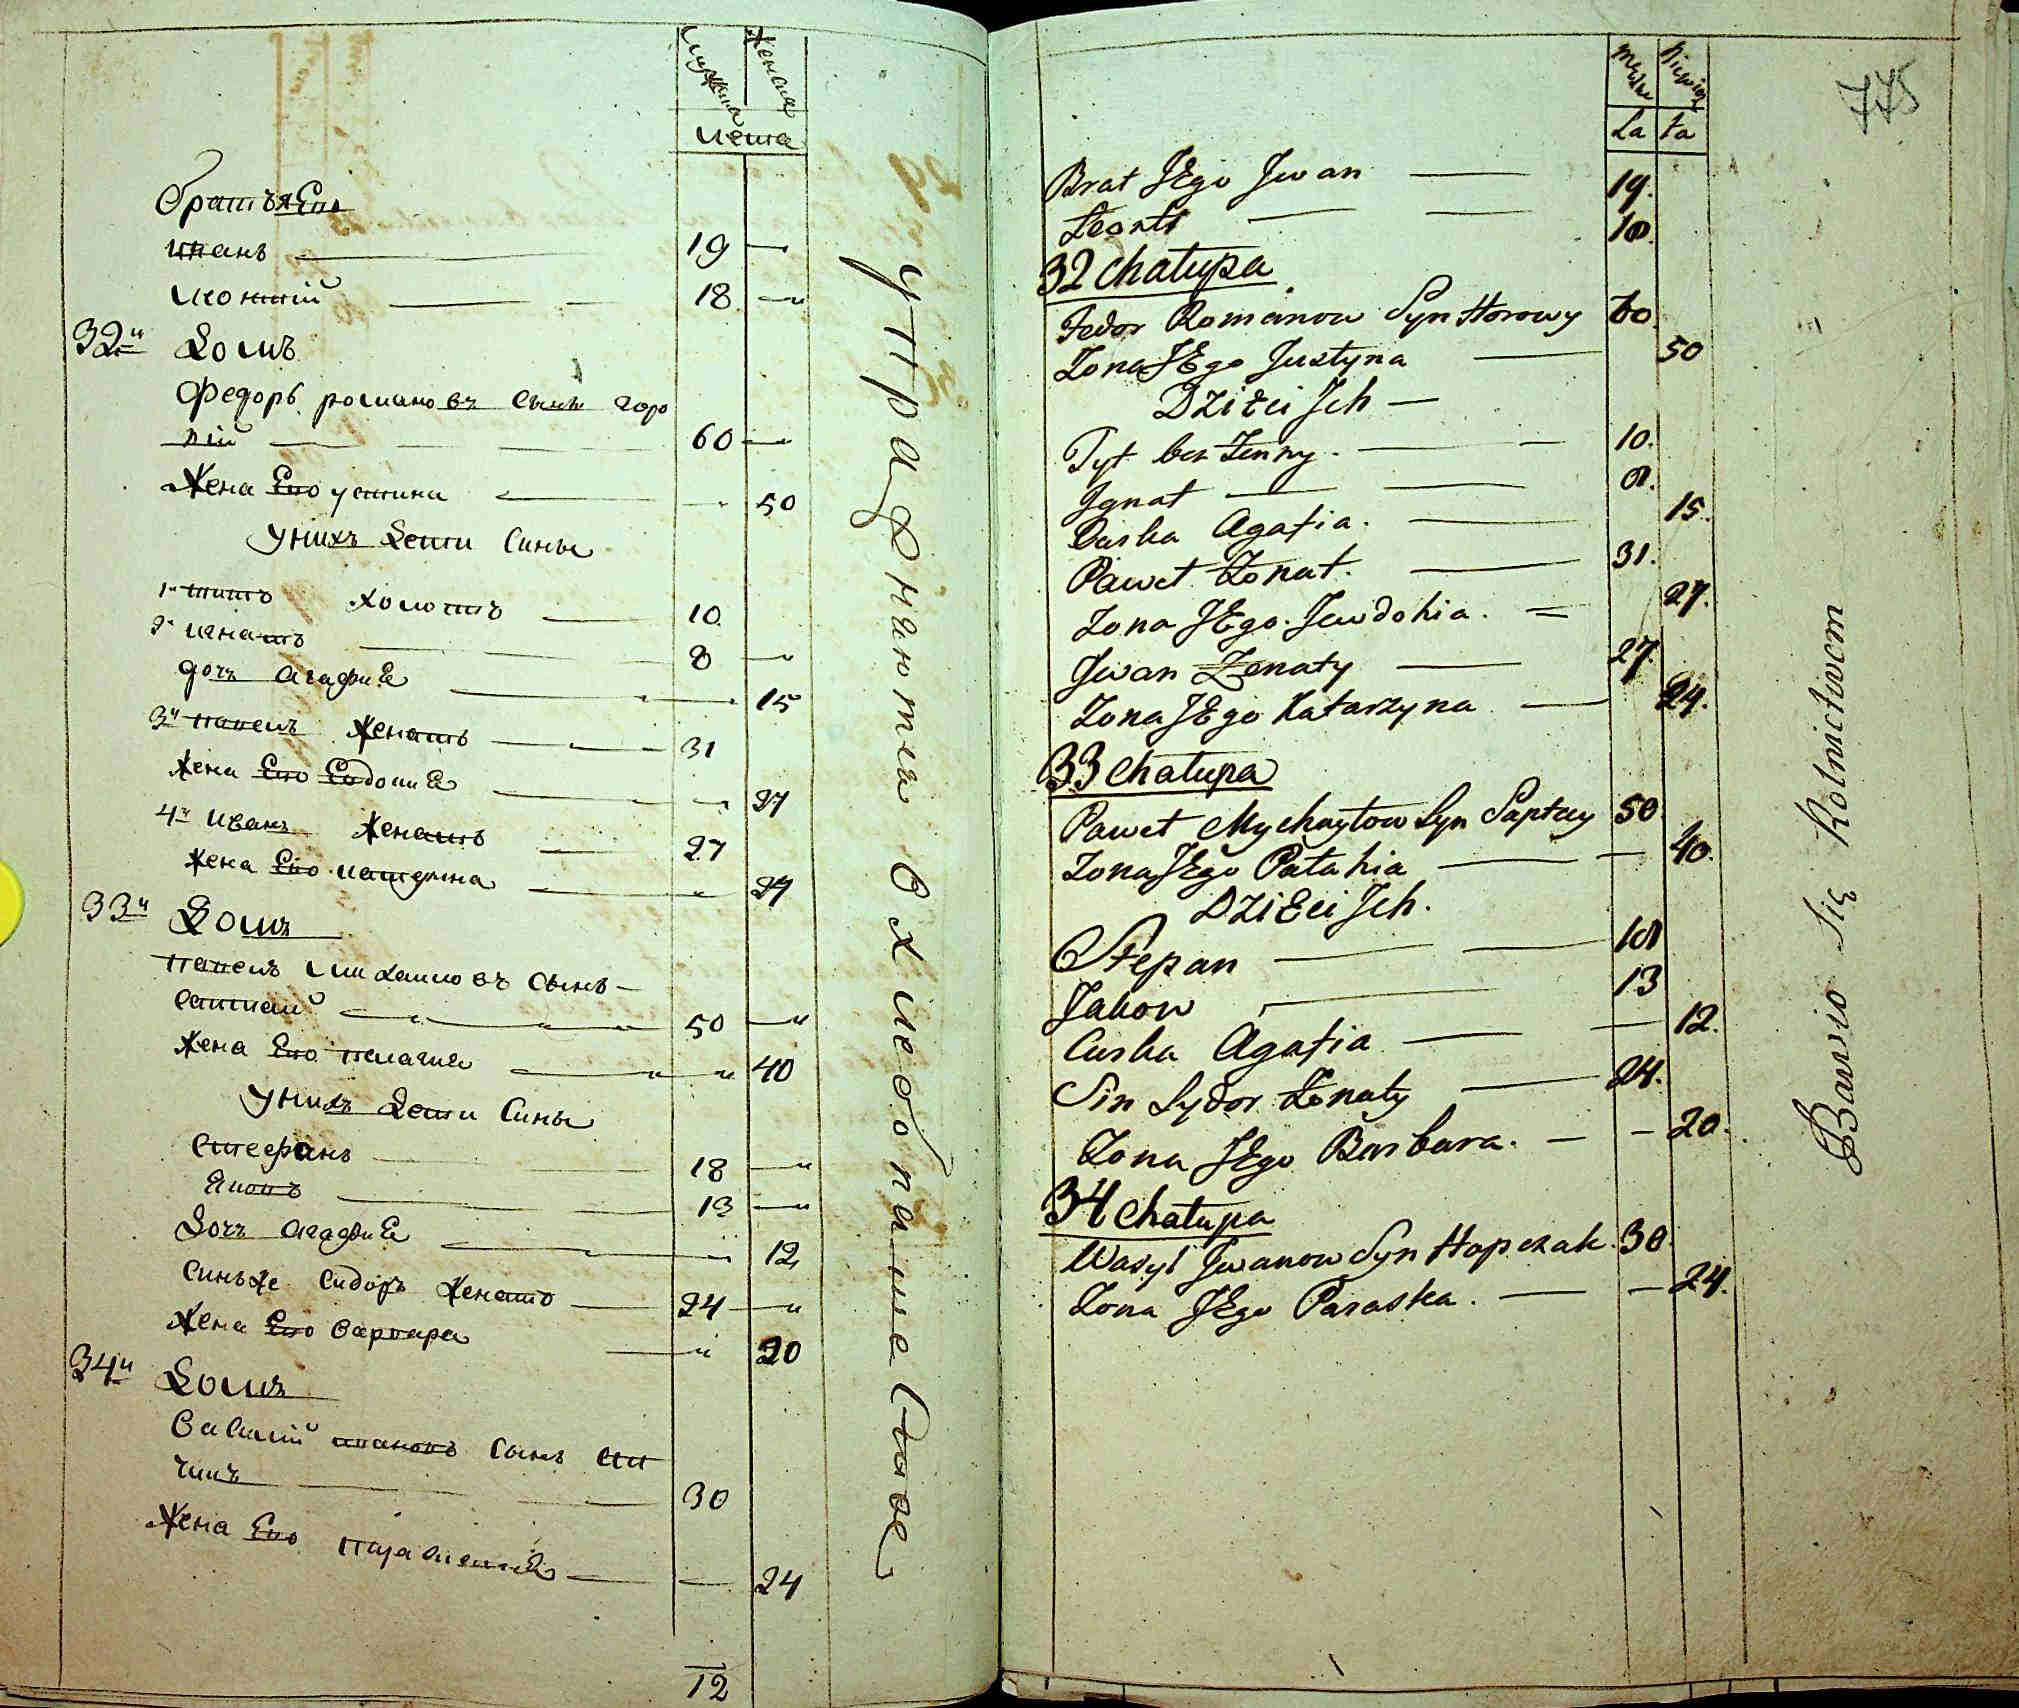 мужеска женска
лета
братья Его
иванъ 19 —
леонтий 18 — „
32й Домъ
Федоръ романовъ сынъ горо
вий 60 —
Жена Его устина — 50
Унихъ Дети Сины
1й титъ холостъ 10
2й игнатъ 8 — „
дочъ агафия — 15
3й павелъ Женатъ 31
Жена Его Евдокия — 27
4й Иванъ Женатъ 27
Жена Его катерина — 24
33й Домъ
павелъ михаиловъ сынъ —
саптаей 50 — „
Жена Его пелагия — 40
Унихъ Дети Сины
стефанъ 18 — „
Яковъ 13 — „
Дочъ агафия — 12
Синъже сидоръ Женатъ 24 — „
Жена Его варвара — 20
34й Домъ
Василий ивановъ сынъ
30
Жена Его параскевия — 24
12
упражняются вхлебопашестве
775
męzkie
La ta
Brat JEgo Jwan — 19.
Leonti — 18.
32 chałupa
Fedor Romanow Syn Horowy 60
Zona JEgo Justyna — 50
DZiEci Jch —
Tyt bez Zenny. — 10.
Jgnat — 8.
Curka Agafia. — 15.
Paweł Zonat. — 31.
Zona JEgo. Jewdokia. — 27.
Jwan Zenaty — 27.
Zona JEgo Katarzyna — 24.
33 chałupa
Paweł Mychayłow Syn Saptay 50
Zona JEgo Pałahia — 40.
DZiEci Jch.
Stepan — 18
Jakow — 13
Curka Agafia — 12.
Sin Sydor Zonaty — 24.
Zona JEgo Barbara. — 20.
34 chałupa
Wasyl Jwanow Syn Hapczak. 30.
Zona JEgo Paraska. — 24.
Bawio Się Rolnictwem